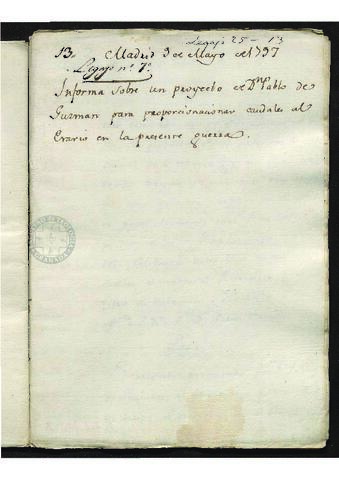 Legajo 25 - 13
13. Madrid 9 de Mayo de 1797
Legajo nº. 7º
Informa sobre un proyecto de Dn. Pablo de
Guzman para proporcionar caudales al
Erario en la presente guerra.